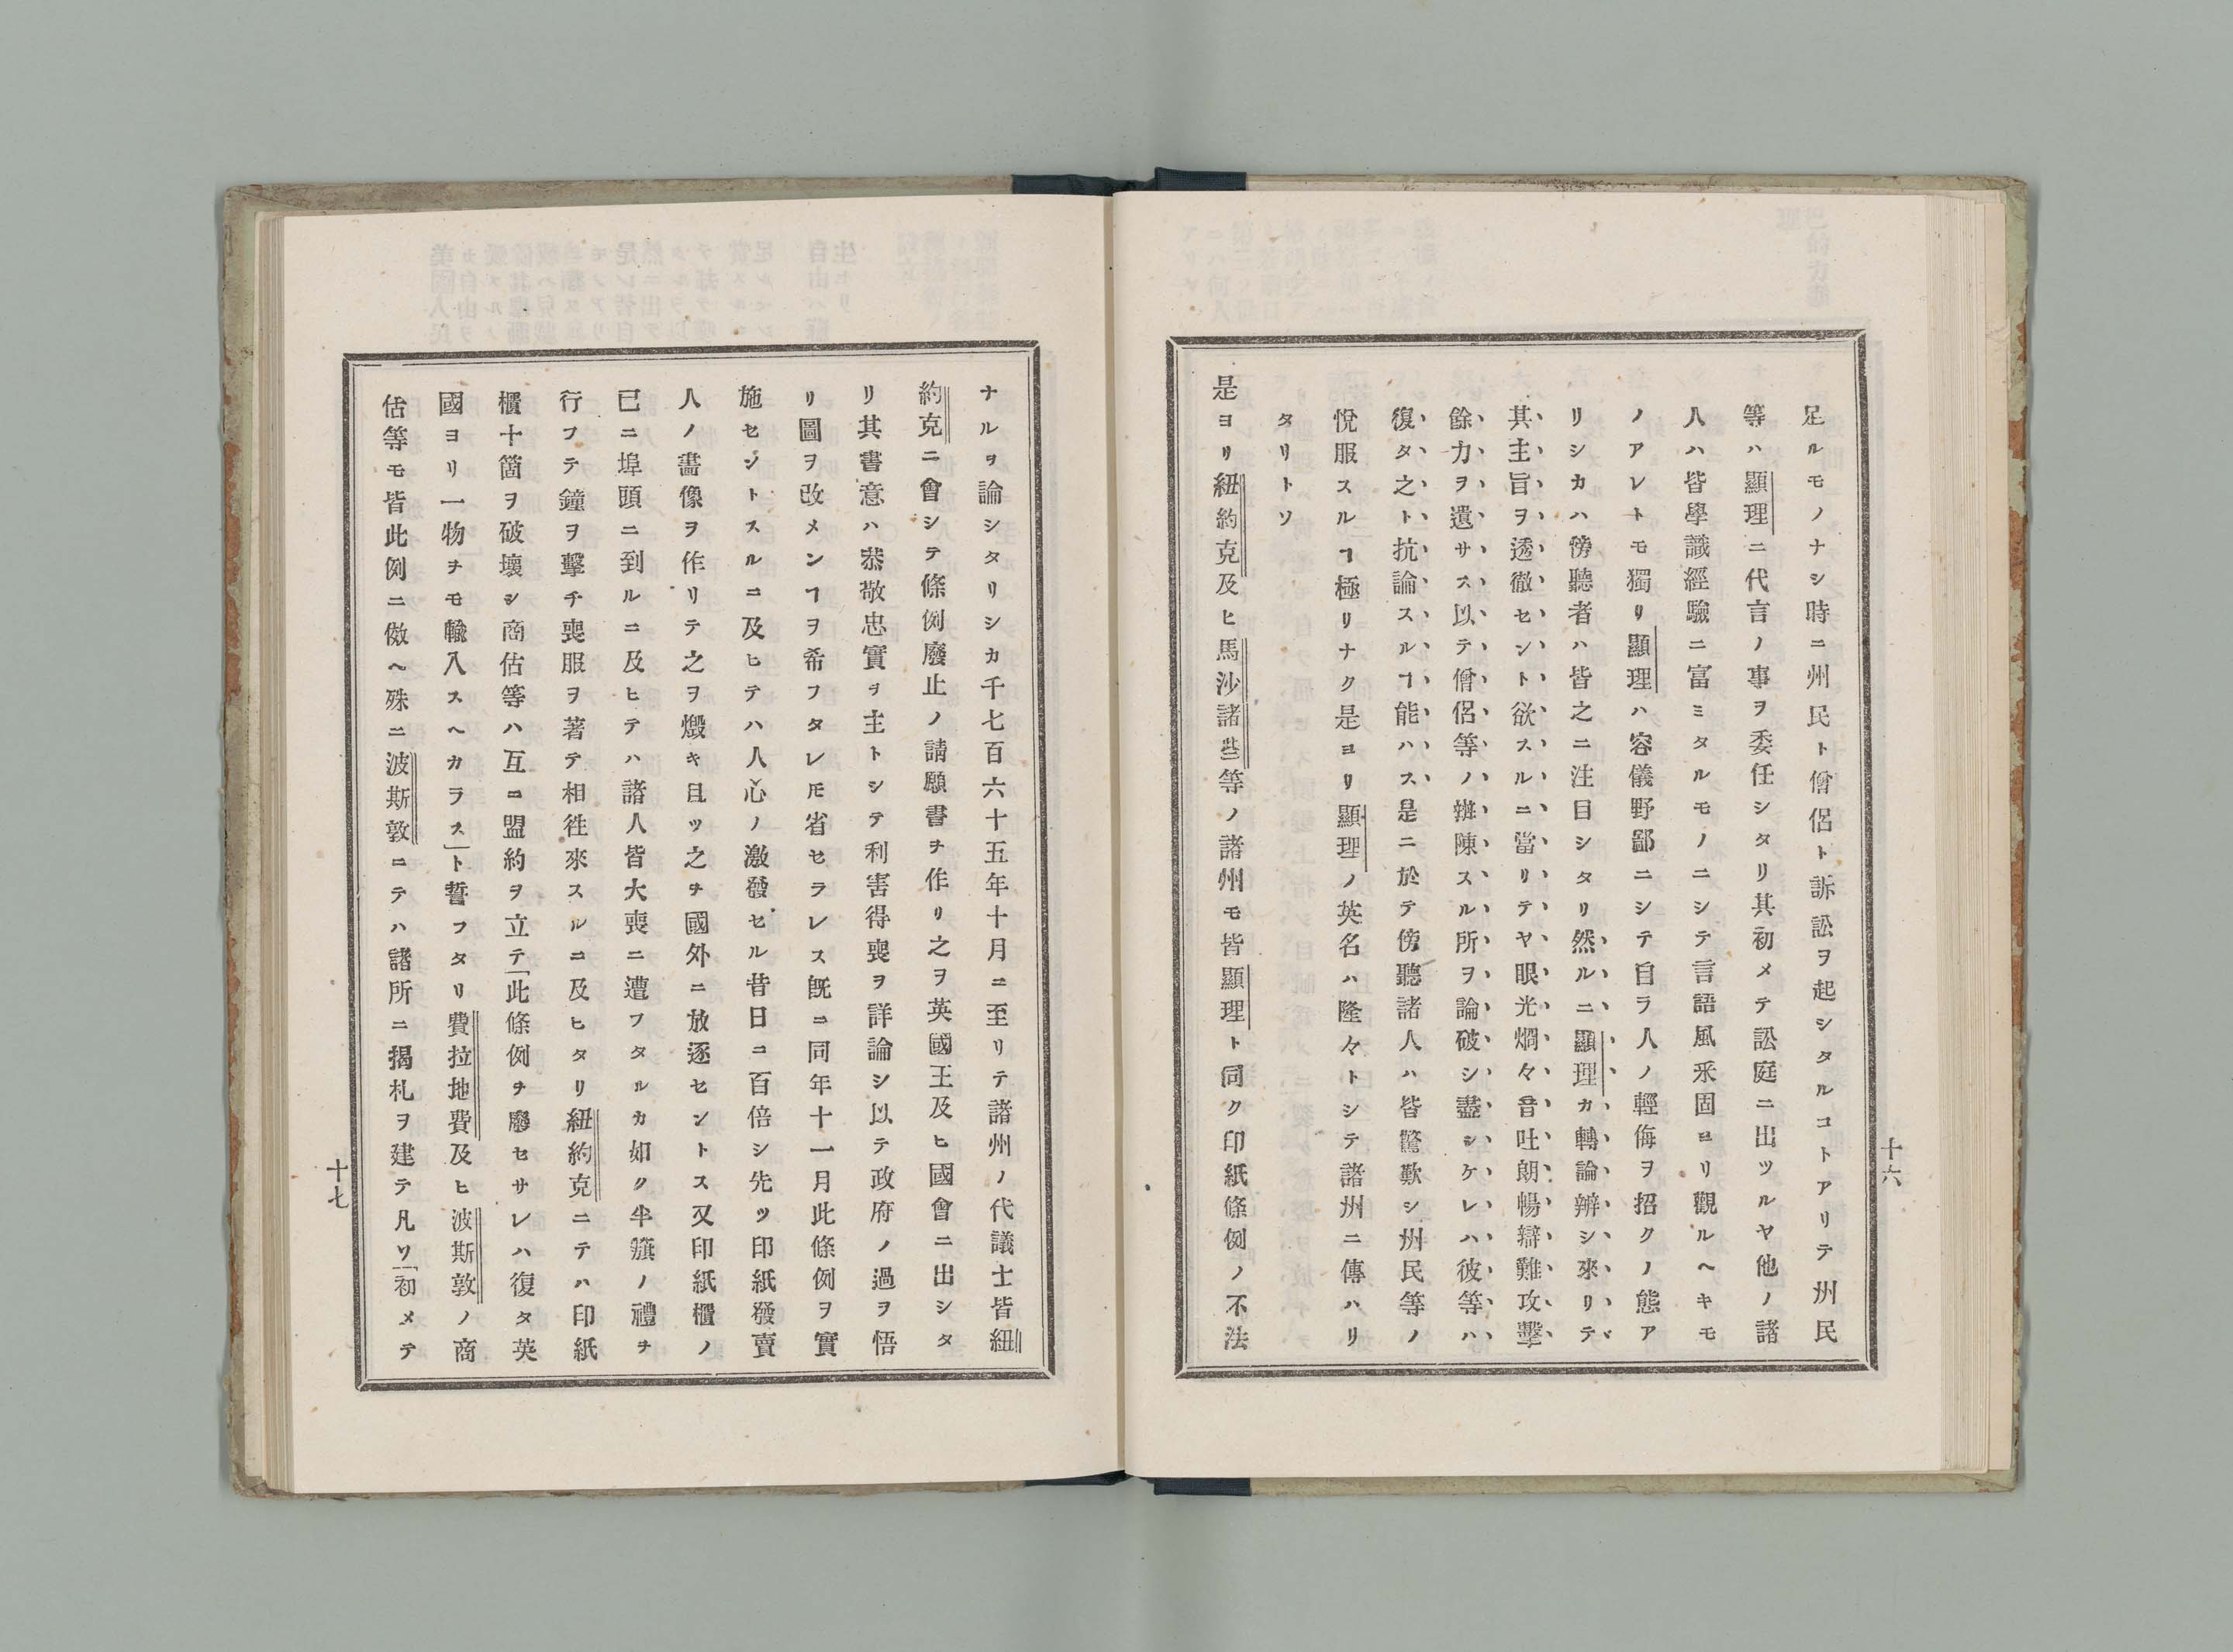 足ルモノナシ時ニ州民ト僧侶ト訴訟ヲ起シタルコトアリテ州民
等ハ顯理ニ代言ノ事ヲ委任シタリ其初メテ訟庭ニ出ツルヤ他ノ諸
人ハ皆學識經驗ニ富ミタルモノニシテ言語風釆固ヨリ觀ルヘキモ
ノアレトモ獨リ顯理ハ容儀野鄙ニシテ自ラ人ノ輕侮ヲ招クノ態ア
リシカハ傍聽者ハ皆之ニ注目シタリ然ルニ顯理カ轉論辨シ來リテ
其主旨ヲ透徹セント欲スルニ當リテヤ眼光烱々音吐朗暢辯難攻擊
餘力ヲ遺サス以テ僧侶等ノ辯陳スル所ヲ論破シ盡シケレハ彼等ハ
復タ之ト抗論スルヿ能ハス是ニ於テ傍聽諸人ハ皆驚歎シ州民等ノ
悅服スルヿ極リナク是ヨリ顯理ノ英名ハ隆々トシテ諸州ニ傳ハリ
タリトソ
是ヨリ紐約克及ヒ馬沙諸些等ノ諸州モ皆顯理ト同ク印紙條例ノ不法
十六
ナルヲ論シタリシカ千七百六十五年十月ニ至リテ諸州ノ代議士皆紐
約克ニ會シテ條例廢止ノ請願書ヲ作リ之ヲ英國王及ヒ國會ニ出シタ
リ其書意ハ恭敬忠實ヲ主トシテ利害得喪ヲ詳論シ以テ政府ノ過ヲ悟
リ圖ヲ改メンヿヲ希フタレ𪜈省セラレス旣ニ同年十一月此條例ヲ實
施セントスルニ及ヒテハ人心ノ激發セル昔日ニ百倍シ先ツ印紙發賣
人ノ畵像ヲ作リテ之ヲ燬キ且ツ之ヲ國外ニ放逐セントス又印紙櫃ノ
已ニ埠頭ニ到ルニ及ヒテハ諸人皆大喪ニ遭フタルカ如ク半籏ノ禮ヲ
行フテ鐘ヲ擊チ喪服ヲ著テ相徃來スルニ及ヒタリ紐約克ニテハ印紙
櫃十箇ヲ破壞シ商估等ハ互ニ盟約ヲ立テ「此條例ヲ廢セサレハ復タ英
國ヨリ一物ヲモ輸入スヘカラス」ト誓フタリ費拉地費及ヒ波斯敦ノ商
估等モ皆此例ニ倣ヘ殊ニ波斯敦ニテハ諸所ニ揭札ヲ建テ凡ソ「初メテ
十七